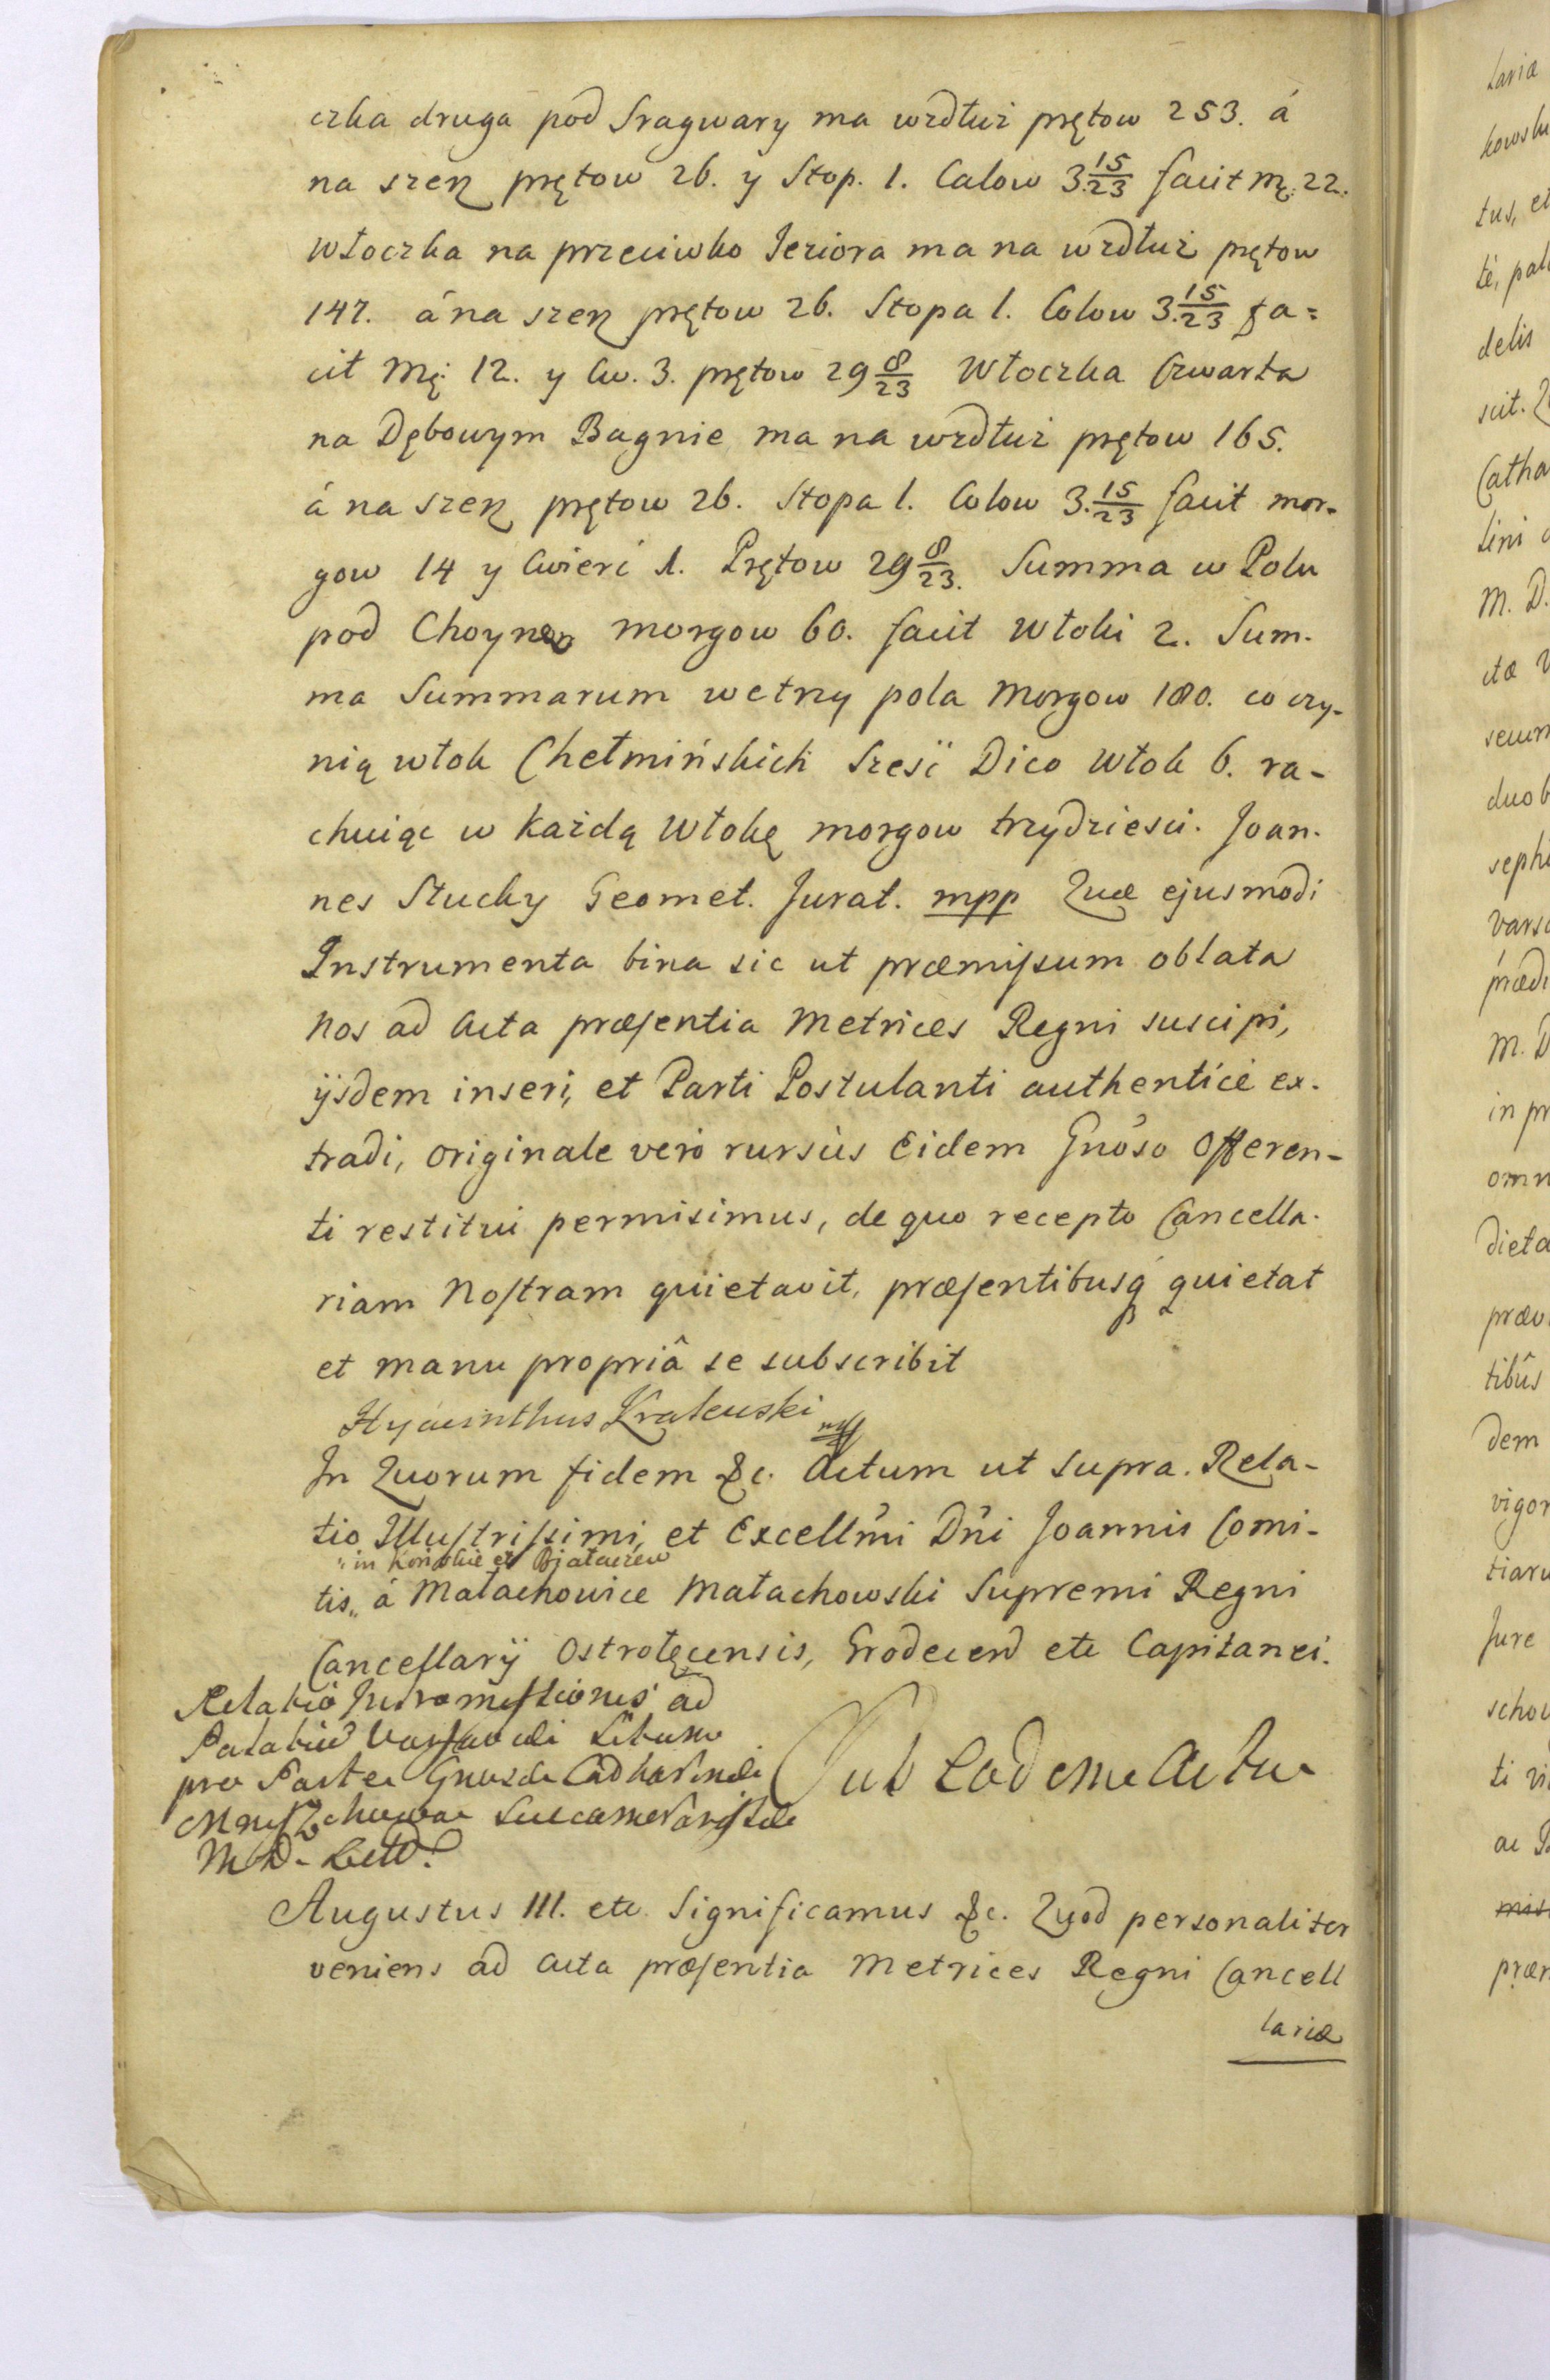 czka druga pod Sragwary ma wzdłuż prętow 253. á
na szerz prętow 26. y Stop. 1. Calow 3 15/23 facit Mę: 22.
Włoczka na przeciwko Jeziora ma na wzdłuż prętow
147. á na szerz prętow 26. Stopa 1. Colow 3 15/23 fa=
cit Mę: 12. y Cw. 3. prętow 29 8/23 Włoczka Czwarta
na Dębowym Bagnie ma na wzdłuż prętow 165.
á na szerz prętow 26. Stopa 1. Colow 3 15/23 facit mor-
gow 14 y Cwierć 1. Prętow 29 8/23. Summa w Polu
pod Choynem morgow 60. facit Włoki 2. Sum-
ma Summarum wetrzy pola Morgow 180. co czy-
nią włok Chełmińskich Sześć Dico Włok 6. ra-
chuiąc w każdą Włokę morgow trzydziesci. Joan-
nes Stucky Geomet. Jurat. mpp Quæ ejusmodi
Instrumenta bina sic ut præmissum oblata
Nos ad Acta præsentia Metrices Regni suscipi,
ijsdem inseri, et Parti Postulanti authenticè ex-
tradi, originale verò rursùs Eidem Gnoso Offeren-
ti restitui permisimus, de quo recepto Cancella-
riam Nostram quietavit, præsentibusq quietat
et manu propriâ se subscribit
Hyacinthus Kralewski mpp
In Quorum fidem &c. Actum ut supra. Rela-
tio Illustrissimi, et Excellmi Dni Joannis Comi-
"in Końskie et Białaczew
tis" á Małachowice Małachowski Supremi Regni
Cancellarij Ostrołęcensis, Grodecen etc Capitanei.
Relatio Intromissionis ad
Palatiũ Varsaviæ Situm
pro Parte Gnosæ Catharinæ
Mniszchowa Succamerarissæ
M. D. Litt.
Sub Eodem Actu
Augustus III. etc Significamus &c. Quod personaliter
veniens ad Acta præsentia Metrices Regni Cancell
lariæ